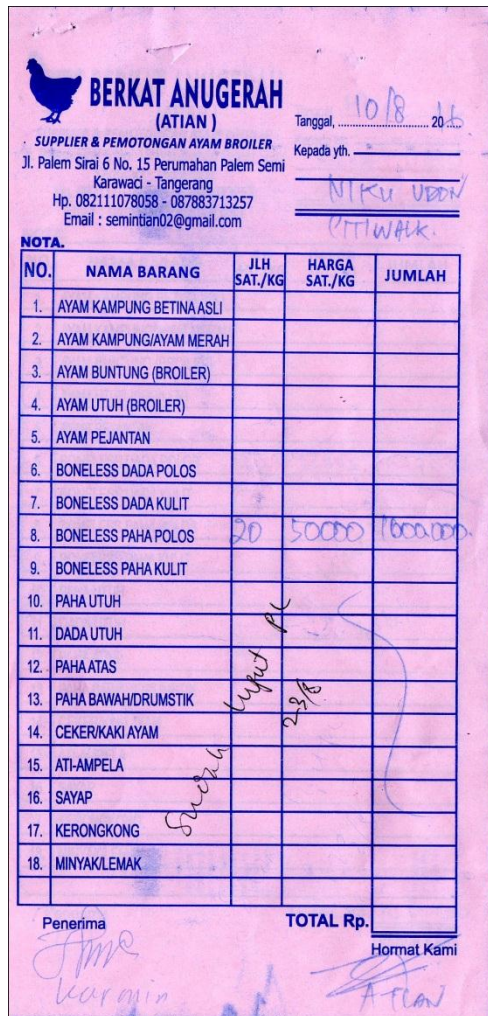 BERKAT ANUGERAH
(ATIAN)
SUPPLIER & PEMOTONGAN AYAM BROILER
Jl. Palem Sirai 6 No. 15 Perumahan Palem Semi
Karawaci - Tangerang
Hp. 082111078058 - 087883713257
Email : semintian02@gmail.com
Tanggal, 10/8 2016
Kepada yth.
NIKU UDON
CITIWALK.
NOTA.
NO. NAMA BARANG JLH SAT./KG HARGA SAT./KG JUMLAH
1. AYAM KAMPUNG BETINA ASLI
2. AYAM KAMPUNG/AYAM MERAH
3. AYAM BUNTUNG (BROILER)
4. AYAM UTUH (BROILER)
5. AYAM PEJANTAN
6. BONELESS DADA POLOS
7. BONELESS DADA KULIT
8. BONELESS PAHA POLOS 20 50000 1000.000.
9. BONELESS PAHA KULIT
10. PAHA UTUH
11. DADA UTUH
12. PAHA ATAS
13. PAHA BAWAH/DRUMSTIK
14. CEKER/KAKI AYAM
15. ATI-AMPELA
16. SAYAP
17. KERONGKONG
18. MINYAK/LEMAK
Sudah Input PC
23/8
TOTAL Rp.
Penerima
Hormat Kami
Karmin
ATIAN